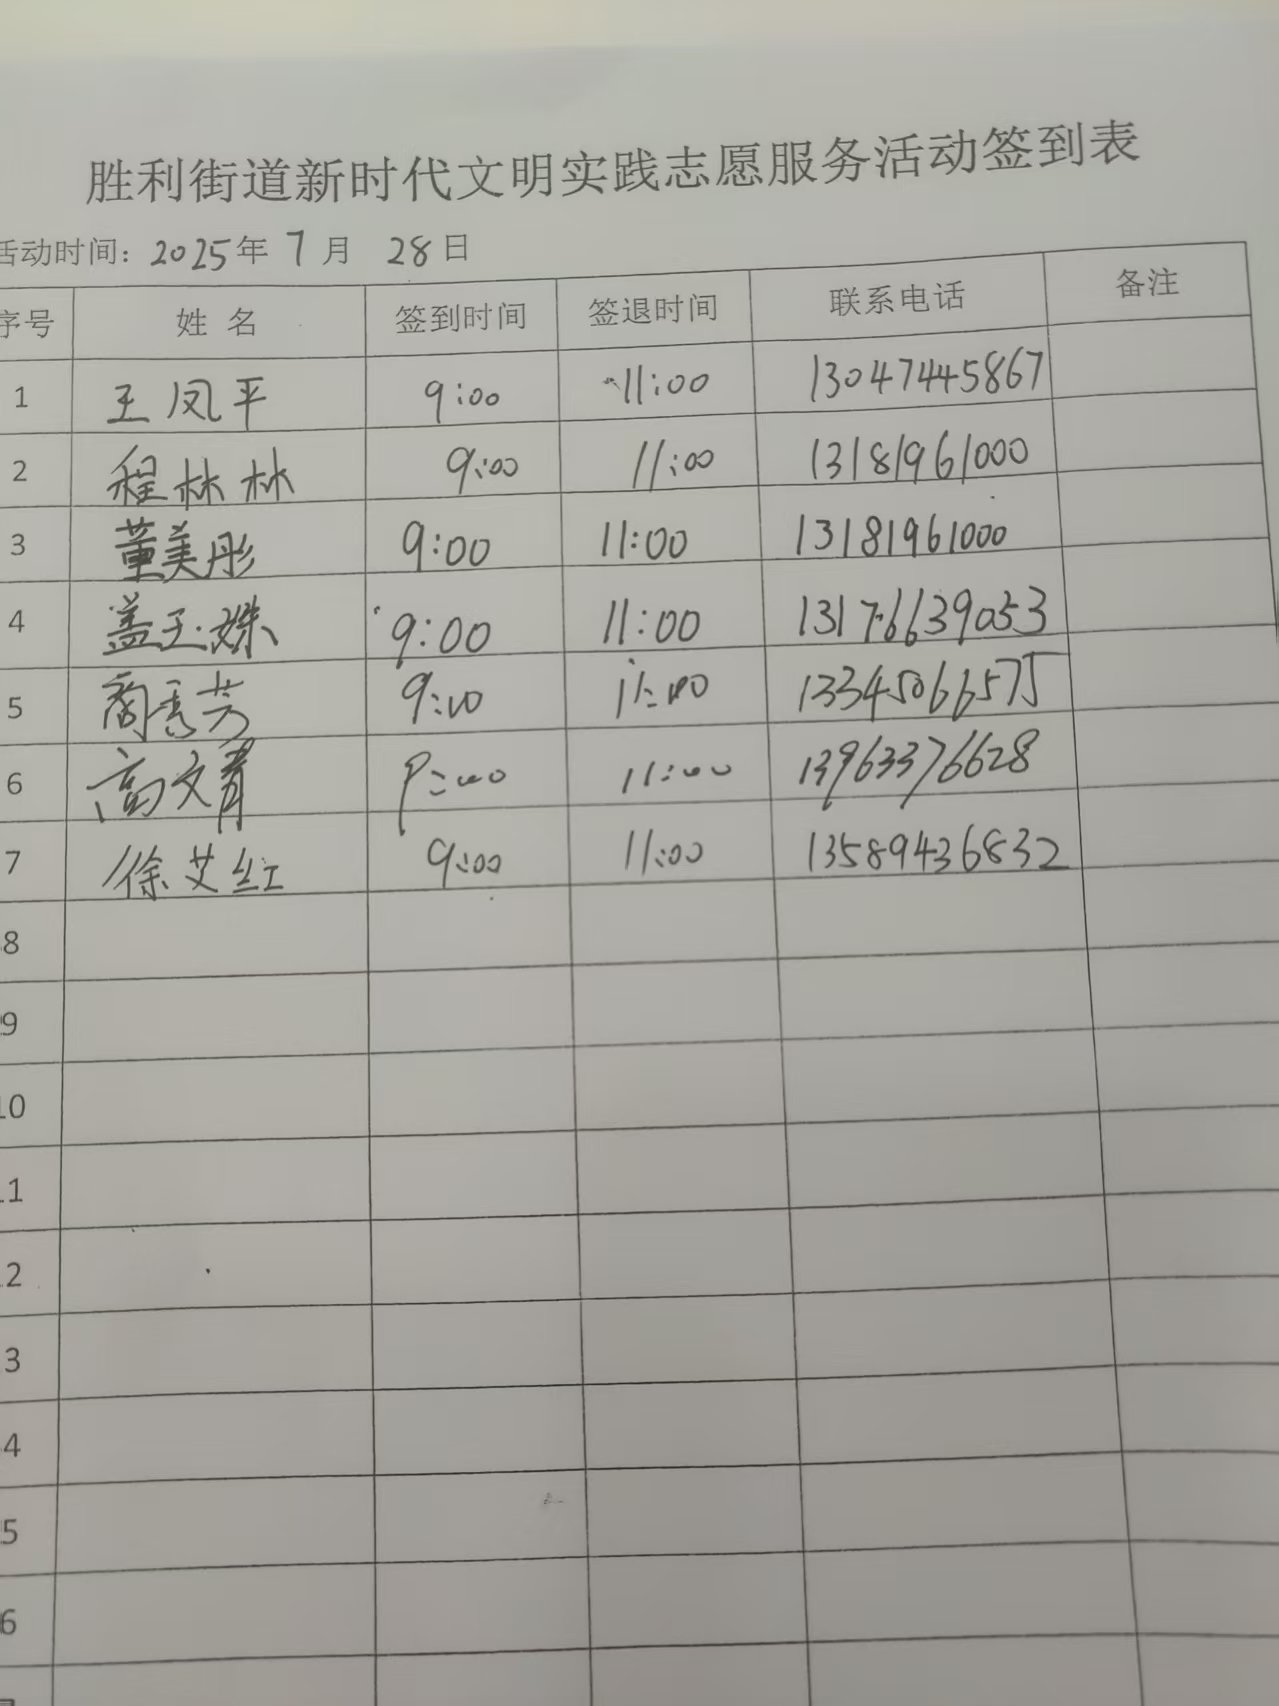 胜利街道新时代文明实践志愿服务活动签到表
活动时间：2025年 7月 28日
序号 姓 名 签到时间 签退时间 联系电话 备注
1 王凤平 9:00 11:00 13047445867
2 程林林 9:00 11:00 13181961000
3 董美彤 9:00 11:00 13181961000
4 盖玉姝 9:00 11:00 13176639053
5 商秀芳 9:00 11:00 13345066575
6 高文青 9:00 11:00 13963376628
7 徐艾红 9:00 11:00 13589436832
8
9
10
11
12
13
14
15
16